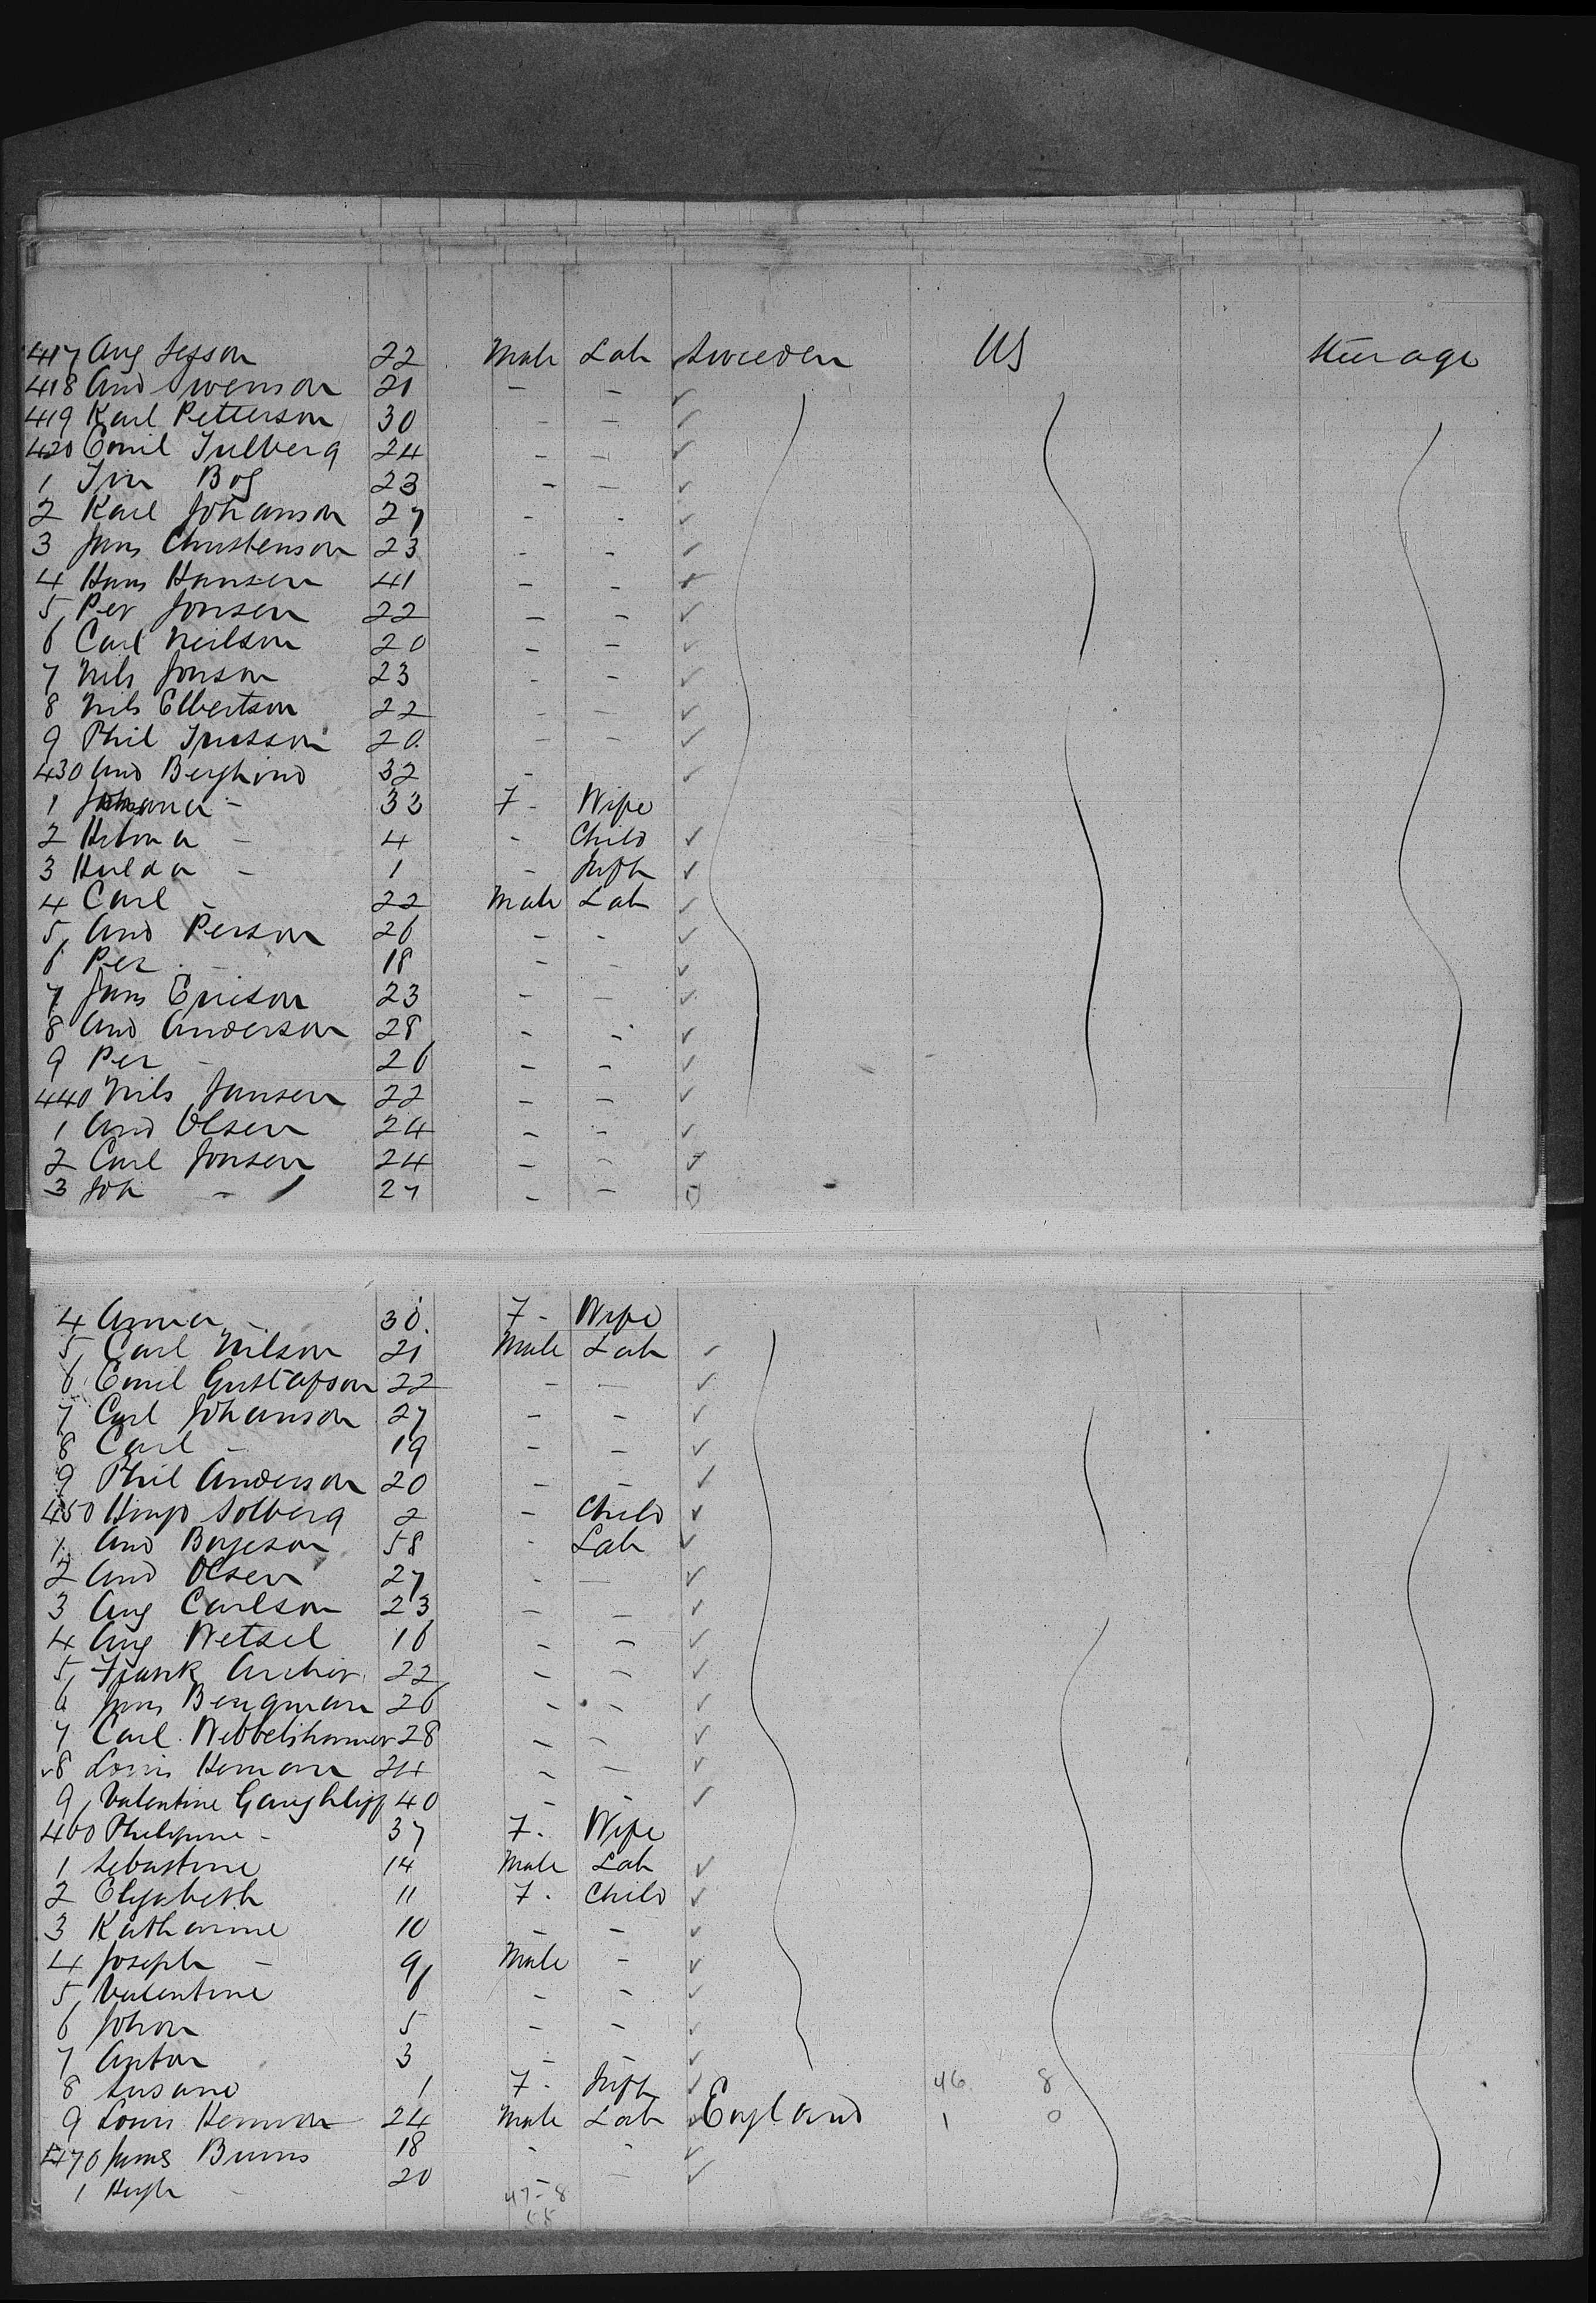 417 Aug Jepson 22 Male Lab Sweden US Steerage
418 And Swenson 21 - - ✓
419 Karl Petterson 30 - - ✓
420 Emil Tulberg 24 - - ✓
1 23 - - ✓
2 Karl Johanson 27 - - ✓
3 Jans Christenson 23 - - ✓
4 Hans Hansen 41 - - ✓
5 Per Jonsen 22 - - ✓
6 Carl Neilson 20 - - ✓
7 Nils Jonson 23 - - ✓
8 Nils Elbertson 22 - - ✓
9 Phil 20 - - ✓
430 And Berghind 32 - ✓
1 Johana - 33 F - Wife
2 - 4 - Child ✓
3 Hulda - 1 - Inft ✓
4 Carl - 22 Male Lab ✓
5 And Person 26 - - ✓
6 Per - 18 - - ✓
7 Jans Ericson 23 - - ✓
8 And Anderson 28 - - ✓
9 Per - 26 - - ✓
440 Nils Jansen 22 - - ✓
1 And Olsen 24 - - ✓
2 Carl Jonsen 24 - - ✓
3 Joh - 27 - -
4 Anna - 30 F - Wife
5 Carl Nilson 21 Male Lab ✓
6 Emil Gustafson 22 - - ✓
7 Carl Johanson 27 - - ✓
8 Carl - 19 - - ✓
9 Phil Anderson 20 - - ✓
450 Solberg 2 - Child ✓
1 And Boyeson 58 - Lab ✓
2 And Olsen 27 - - ✓
3 Aug Carlson 23 - - ✓
4 Aug Wetzel 16 - - ✓
5 Frank 22 - - ✓
6 Jans Bengman 26 - - ✓
7 Carl 28 - - ✓
8 Louis Heman 24 - - ✓
9 Valentine 40 - - ✓
460 Philipine - 37 F - Wife
1 Sebastine 14 Male Lab ✓
2 Elizabeth 11 F - Child ✓
3 Katharine 10 - - ✓
4 Joseph - 9 Male - ✓
5 Valentine 6 - - ✓
6 Johan 5 - - ✓
7 Anton 3 - - ✓
8 Susand 1 F - Inft ✓ 46 8
9 Louis 24 Male Lab ✓ England 1 0
470 James Burns 18 - - ✓
1 Hugh - 20 - - ✓
47-8
55